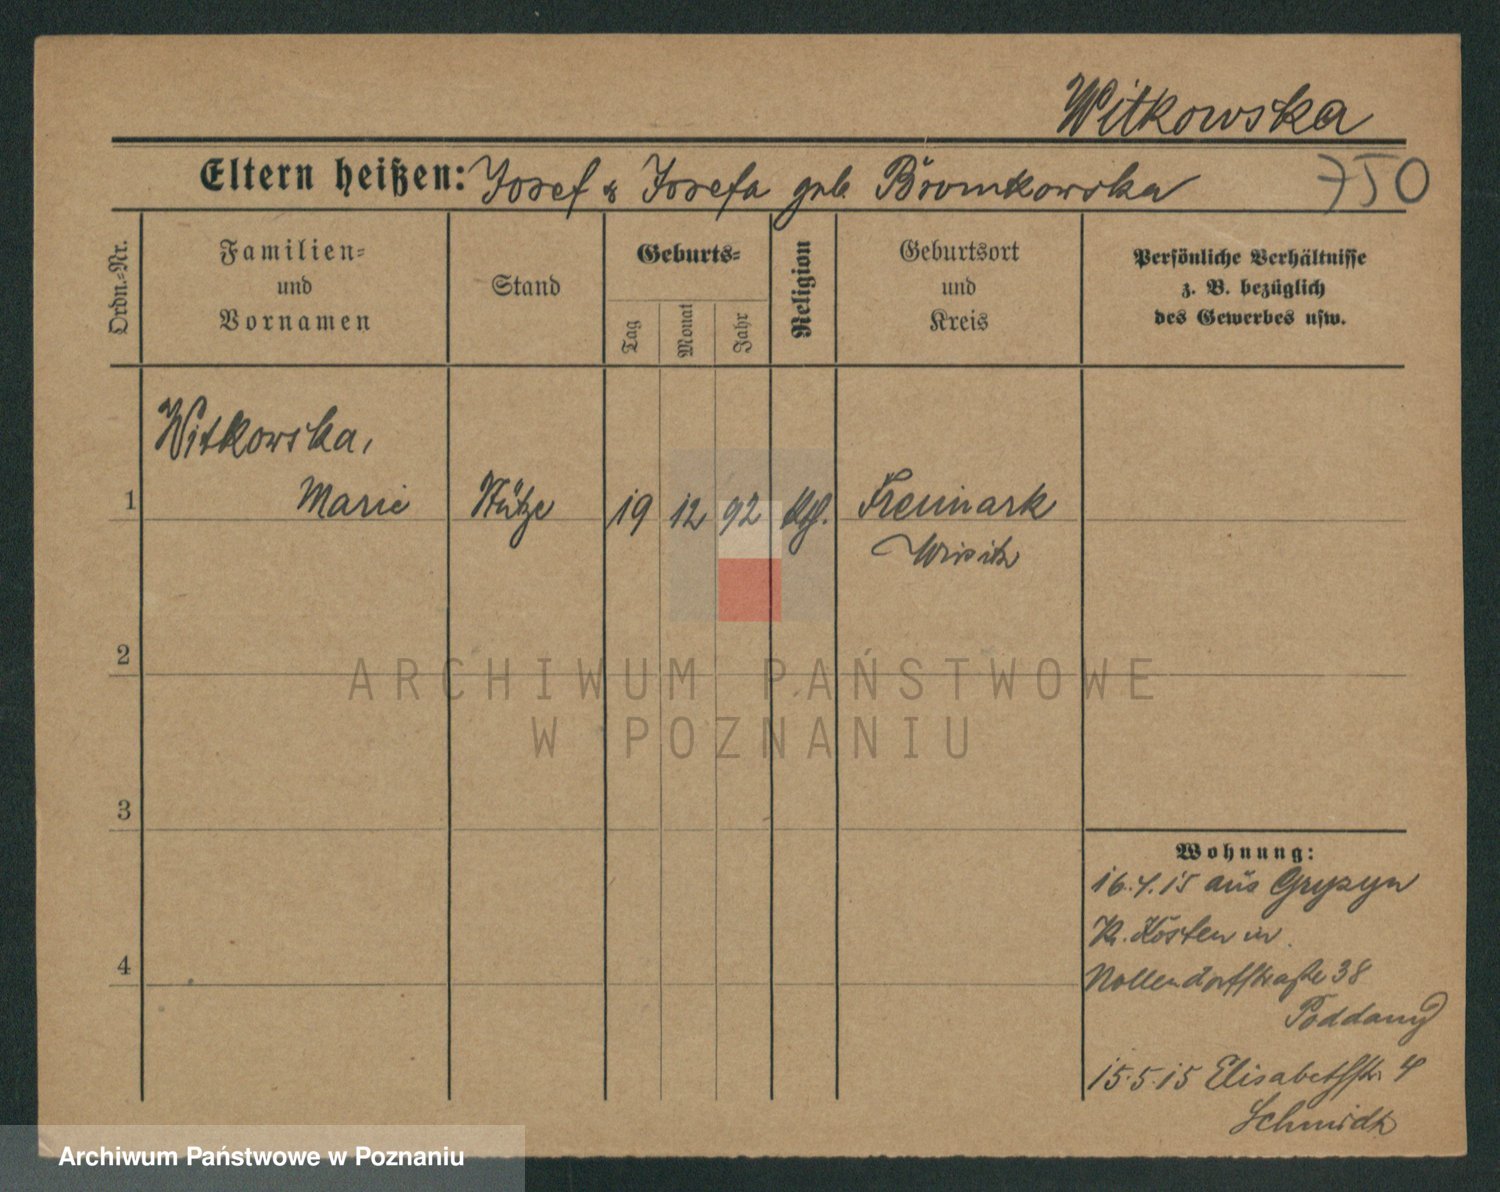 Witkowska
Eltern heißen: Josef & Josefa geb. Bromkowska
750
Ordn.-Nr.
Familien-
und
Vornamen
Stand
Geburts-
Tag
Monat
Jahr
Religion
Geburtsort
und
Kreis
Persönliche Verhältnisse
z. B. bezüglich
des Gewerbes usw.
Witkowska,
1 Marie Stütze 19 12 92 ktf. Freimark
Wirsitz
2
3
4
Wohnung:
16.4.15 aus Gryzyn
Kr. Kosten in
Nollendorfstraße 38
Poddany
15.5.15 Elisabethstr. 4
Schmidt
ARCHIWUM PAŃSTWOWE
W POZNANIU
Archiwum Państwowe w Poznaniu